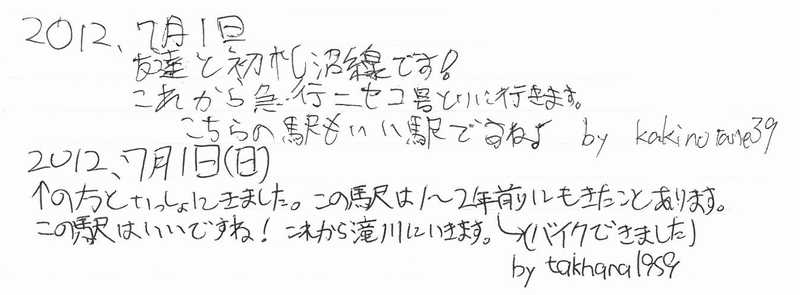 2012、7月1日
友達と初札沼線です!
これから急行ニセコ号とりに行きます。
こちらの駅もいい駅ですね♪ by kakinotane39
2012、7月1日(日)
↑の方といっしょにきました。この駅は1~2年前にもきたことあります。
この駅はいいですね! これから滝川にいきます。 (バイクできました)
by takhara1959